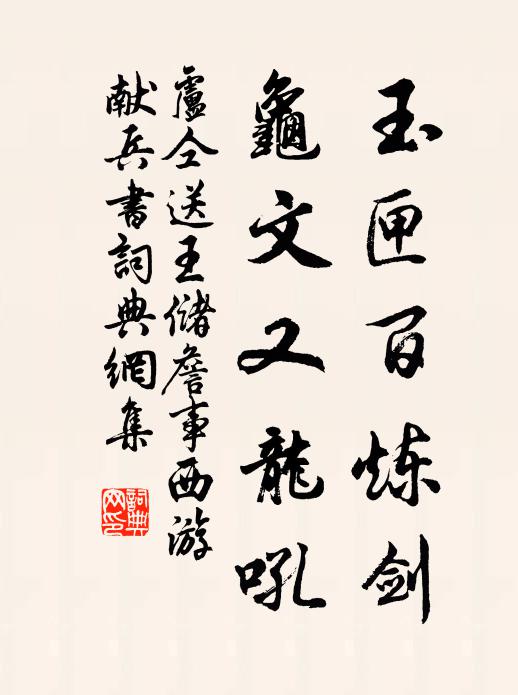 玉匣百炼剑
龜文又龍吼
盧仝送王儲詹事西游
献兵書詞典網集
詞典网印